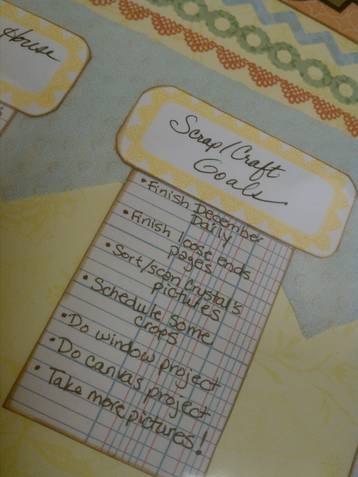 House
Scrap/Craft
Goals
• Finish December
Daily
• Finish loose ends
pages
• Sort/scan Crystal's
pictures
• Schedule some
crops
• Do window project
• Do canvas project
• Take more pictures!